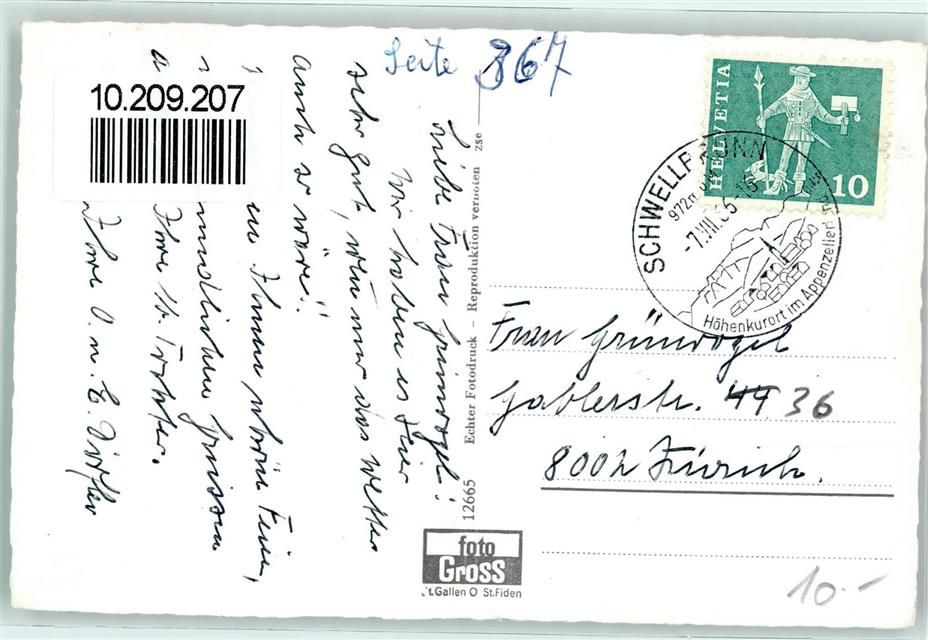 Seite 367
10.209.207
HELVETIA
10
SCHWELLBRUNN
972m
-7.VII.65-15
Höhenkurort im Appenzellerland
Liebe Frau Grünvogel!
Wir haben es hier
sehr gut, wenn nur das Wetter
auch so wäre!
Ihnen schöne Ferien,
freundlichen Grüssen
Ihre lb. Tochter.
Ihre O. u. E.
12665 Echter Fotodruck - Reproduktion verboten zse
Frau Grünvogel
Gablerstr. 44 36
8002 Zürich.
foto
Gross
St.Gallen O St.Fiden
10.-